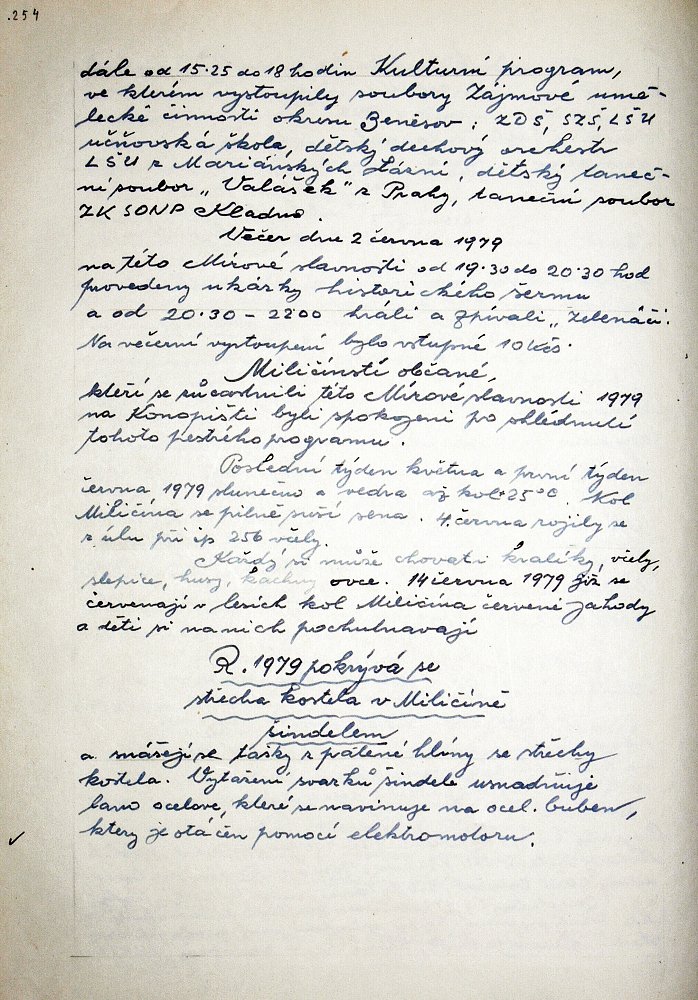 .254
dále od 15.25 do 18 hodin Kulturní program,
ve kterém vystoupily soubory Zájmové umě-
lecké činnosti okresu Benešov: ZDŠ, SZŠ, LŠU
učňovská škola, dětský dechový orchestr
LŠU z Mariánských Lázní, dětský taneč-
ní soubor „Valášek" z Prahy, taneční soubor
ZK SONP Kladno.
Večer dne 2 června 1979
na této Mírové slavnosti od 19.30 do 20.30 hod
provedeny ukázky historického šermu
a od 20.30 - 2200 hráli a zpívali „Zelenáči.
Na večerní vystoupení bylo vstupné 10 Kčs.
Miličínstí občané,
kteří se zúčastnili této Mírové slavnosti 1979
na Konopišti byli spokojeni po shlédnutí
tohoto pestrého programu.
Poslední týden května a první týden
června 1979 slunečno a vedra až kol +25°C. Kol
Miličína se pilně suší sena. 4. června rojily se
z úlu při čp 256 včely.
Každý si může chovati králíky, včely,
slepice, husy, kachny ovce. 14 června 1979 již se
červenají v lesích kol Miličína červené jahody
a děti si na nich pochutnavají
R. 1979 pokrývá se
střecha kostela v Miličíně
šindelem
a snášejí se tašky z pálené hlíny se střechy
kostela. Vytažení svazků šindele usnadňuje
lano ocelové, které se navinuje na ocel. buben,
ktery je otáčen pomocí elektromotoru.